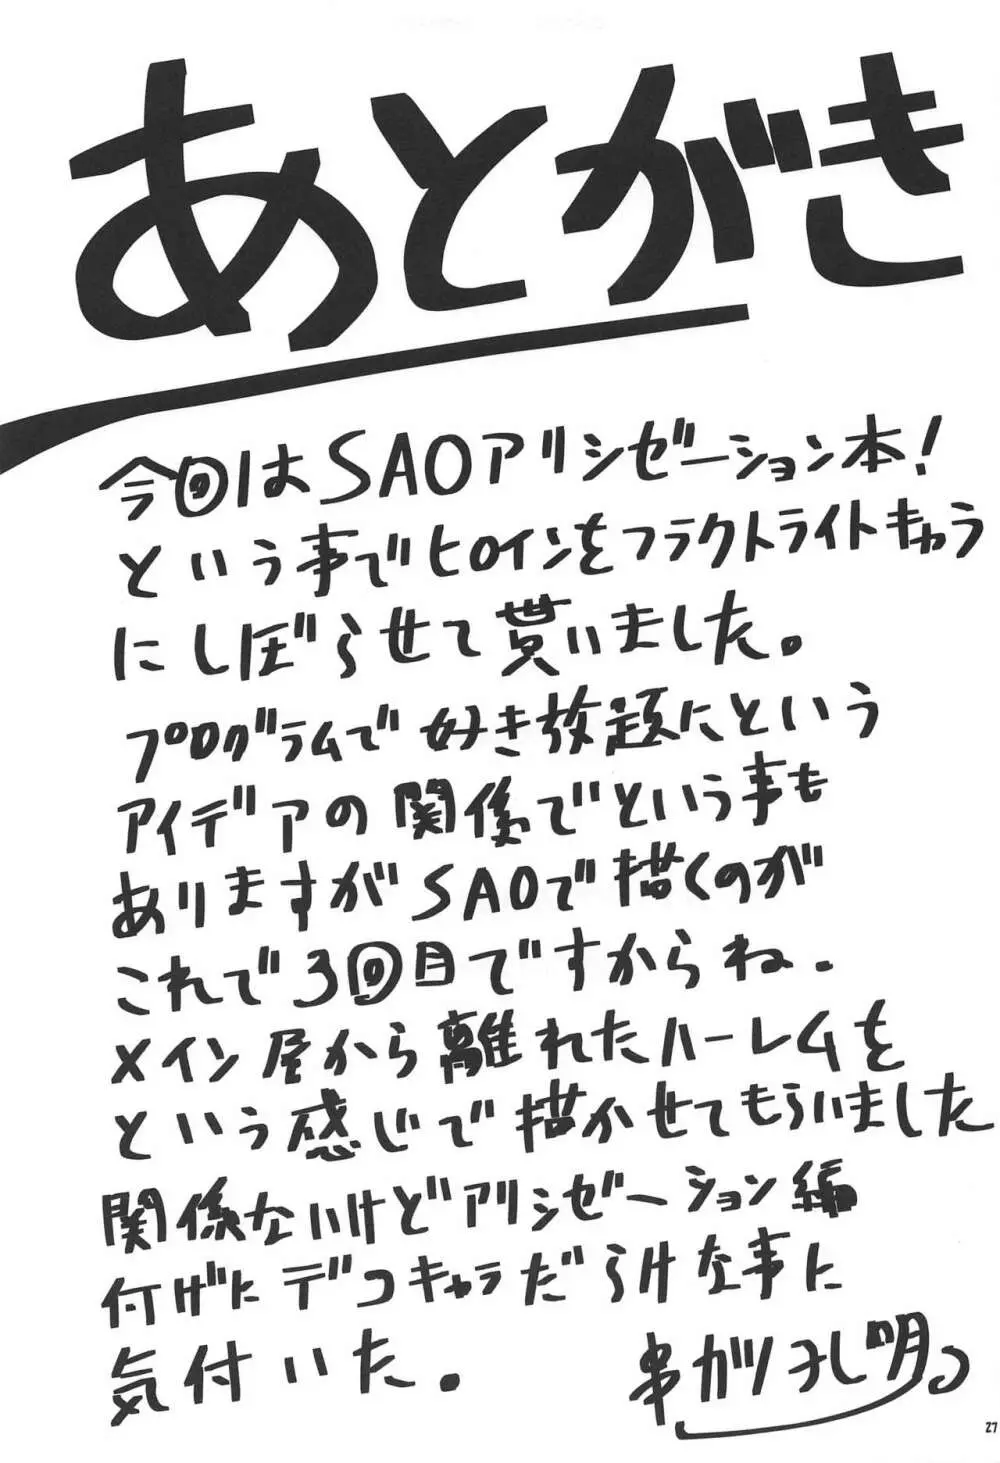 あとがき
今回はSAOアリシゼーション本！
という事でヒロインをフラクトライトキャラ
にしぼらせて貰いました。
プログラムで好き放題にという
アイデアの関係でという事も
ありますがSAOで描くのが
これで3回目ですからね．
メイン屋から離れたハーレムを
という感じで描かせてもらいました
関係ないけどアリシゼーション編
付けにデコキャラだらけな事に
気付いた。
串カツ孔明
27